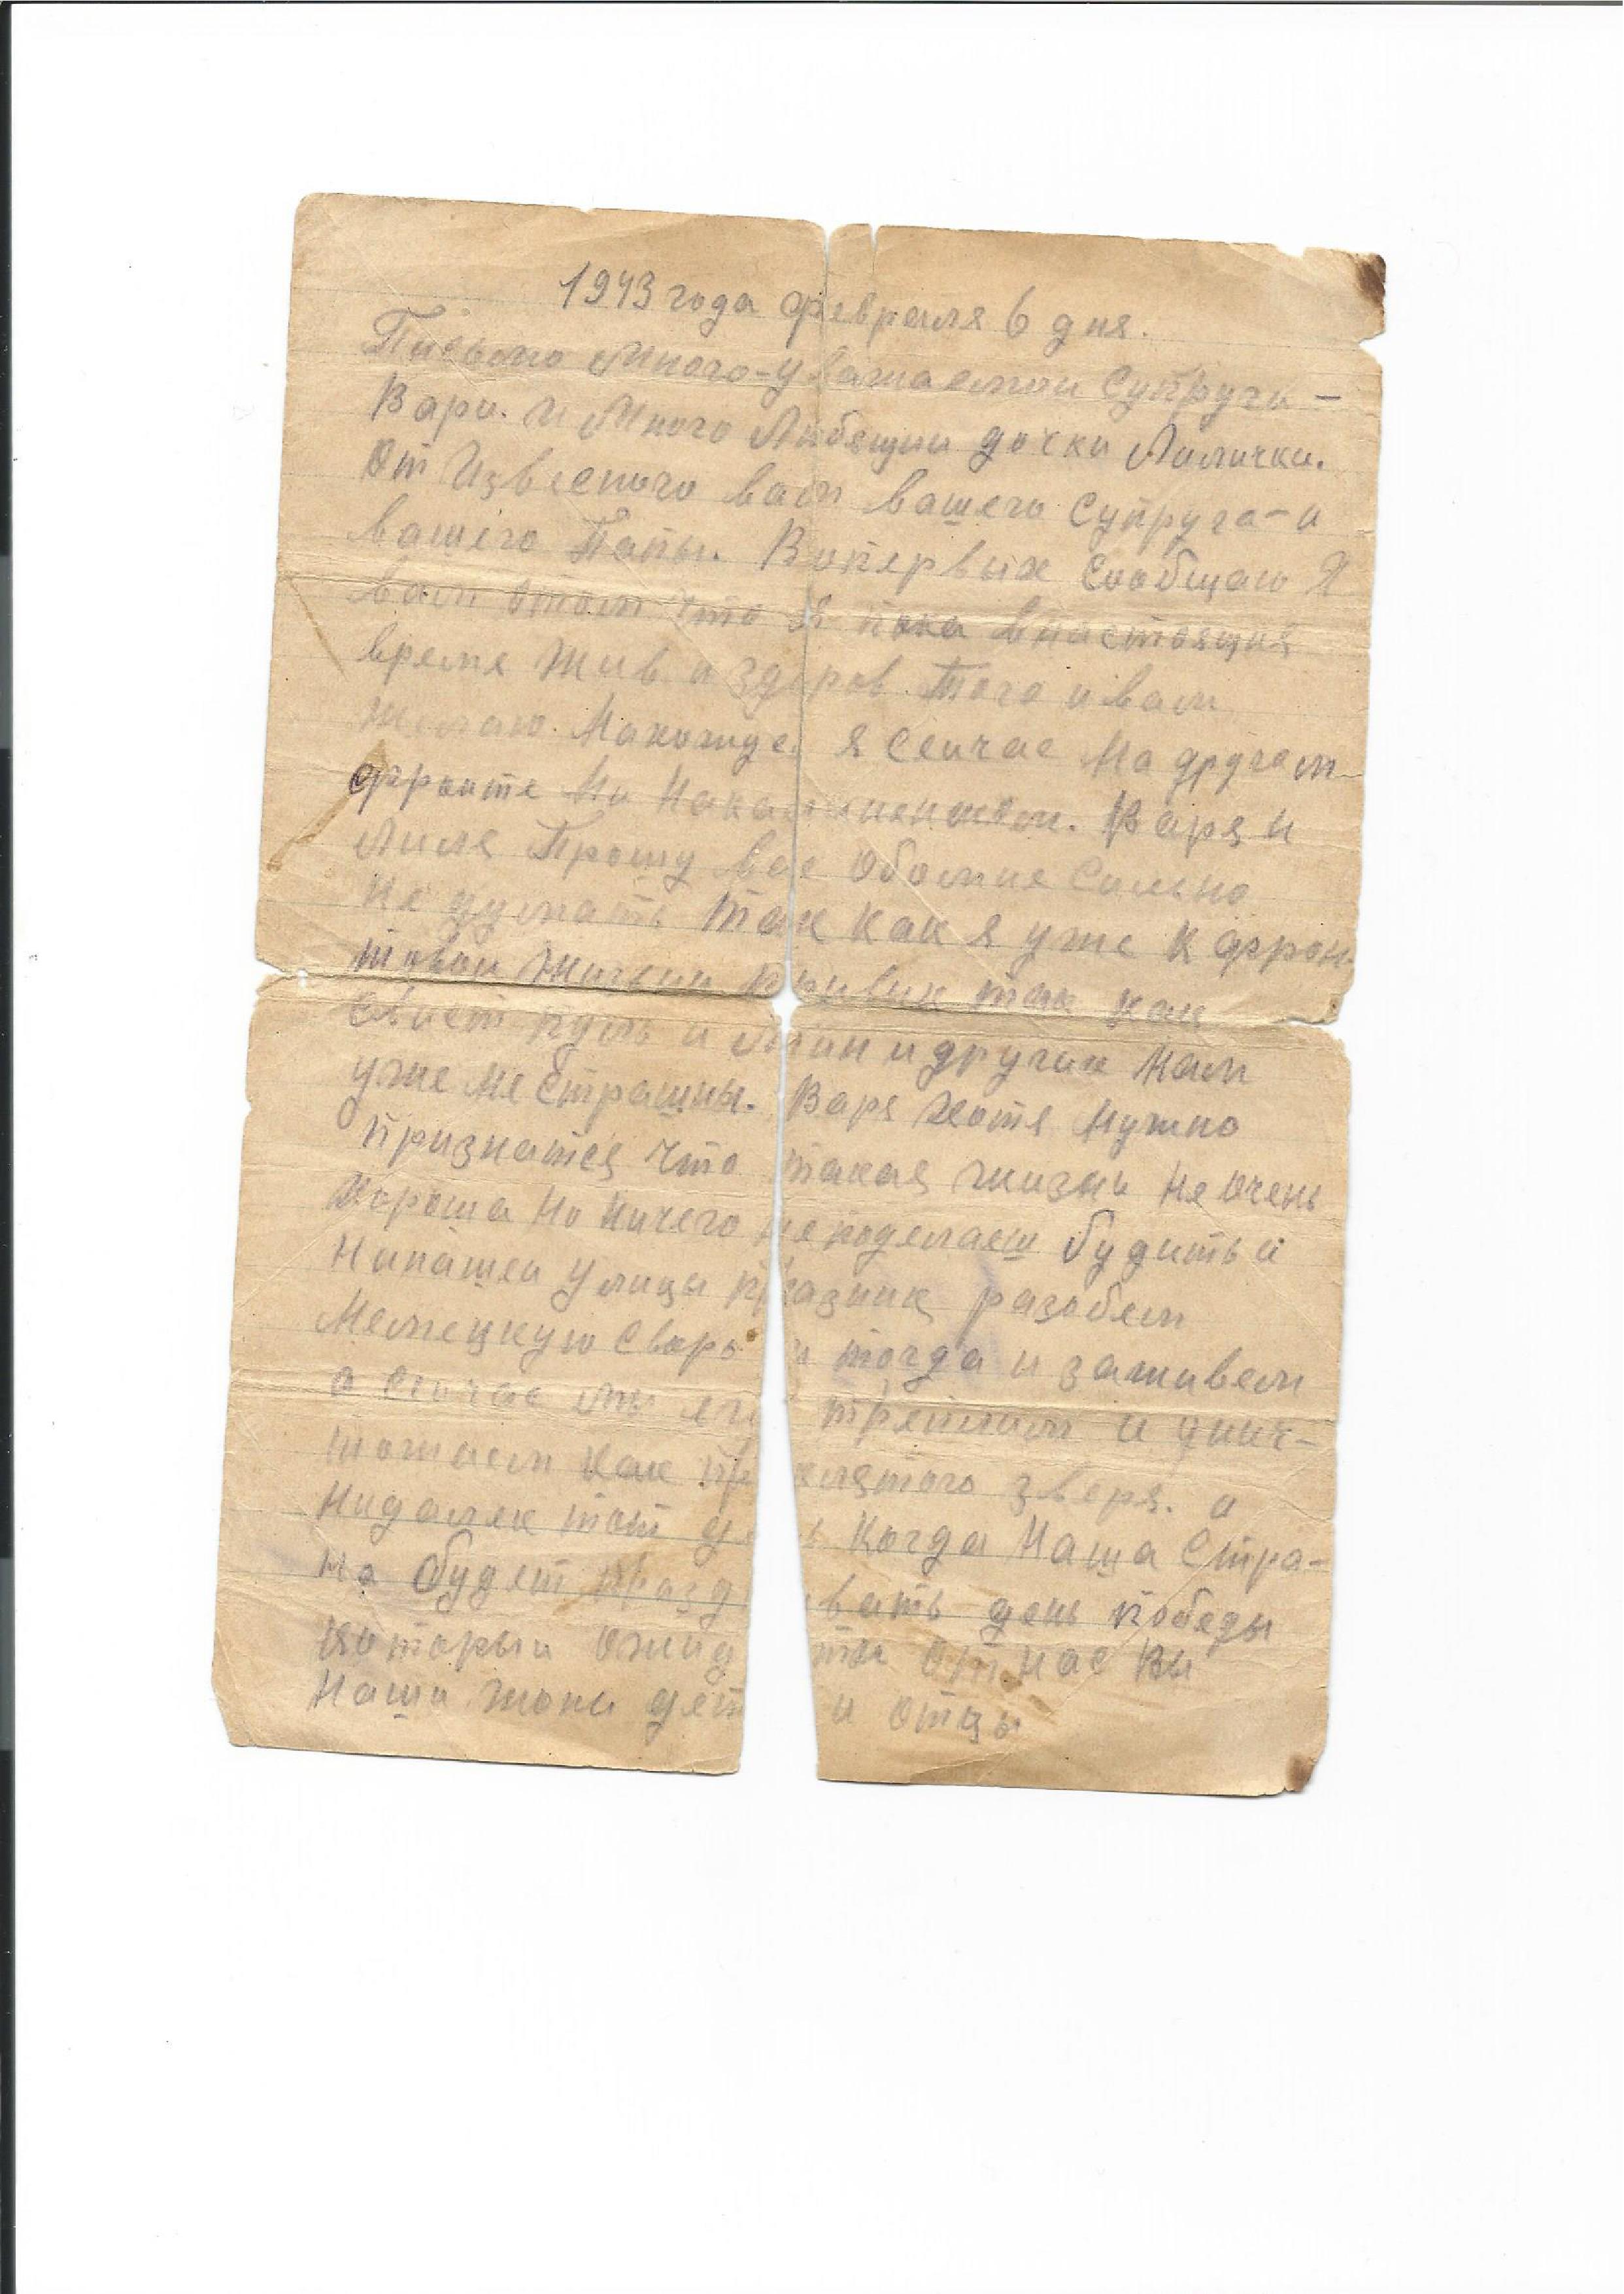 1943 года февраля 6 дня.
Письмо Много-уважаемои Супруги -
Вари. И Много Любящии дочки Лилички.
От Известного вам вашего Супруга - и
вашего Папы. Вопервых Сообщаю Я
вам отом что я пока внастоящия
время жив и здоров. Того и вам
желаю. Нахожусь я Сеичас На другом
фронте На Варя и
Лиля Прошу вас Обомне Сильно
Не думать Так Как я уже К фрон
товои жизьни привык так как
Свист пуль и Мин и других Нам
уже Не Страшны. Варя Хотя Нужно
признатся Что такая жизнь Не Очень
Хороша Но Ничего неподелаеш будить и
Нанашеи Улицы празник разобем
Немецкую Сворь и тогда и заживем
а Сеичас мы его треплим и унич-
тожаем Как пр клятого зверя. и
Нидалек тот де ь Когда Наша Стра-
на будет празд вать день победы
которыи Ожид те От Нас Вы
Наши жоны дет и Отцы